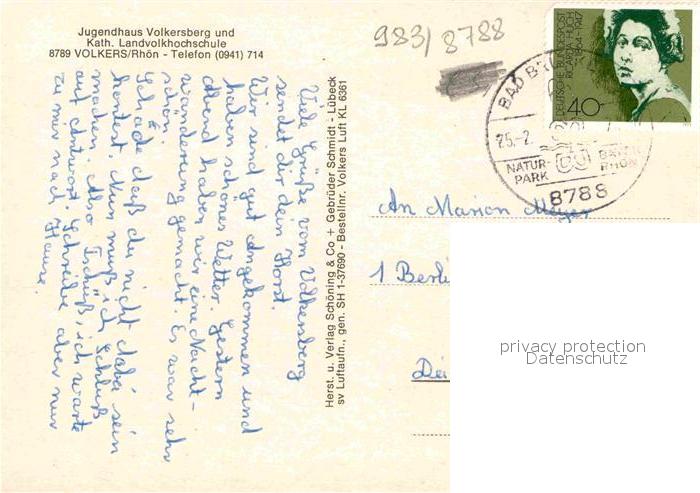 Jugendhaus Volkersberg und
Kath. Landvolkhochschule
8789 VOLKERS/Rhön - Telefon (0941) 714
Viele Grüße vom Volkersberg
sendet dir dein Horst.
Wir sind gut angekommen und
haben schönes Wetter. Gestern
abend haben wir eine Nacht-
wanderung gemacht. Es war sehr
schön.
Schade daß du nicht dabei sein
kontest. Nun muß ich Schluß
machen. Also Tschüß, ich warte
auf Antwort. Schreibe aber nur
zu mir nach Hause.
Herst. u. Verlag Schöning & Co + Gebrüder Schmidt - Lübeck
sv Luftaufn., gen. SH 1-37690 - Bestellnr. Volkers Luft KL 6361
983/8788
DEUTSCHE BUNDESPOST
RICARDA HUCH
1864-1947
40
BAD BR
25.-2.
NATUR-
PARK
BAYER.
RHÖN
8788
An Marion Meyer
1 Berli
privacy protection
Datenschutz